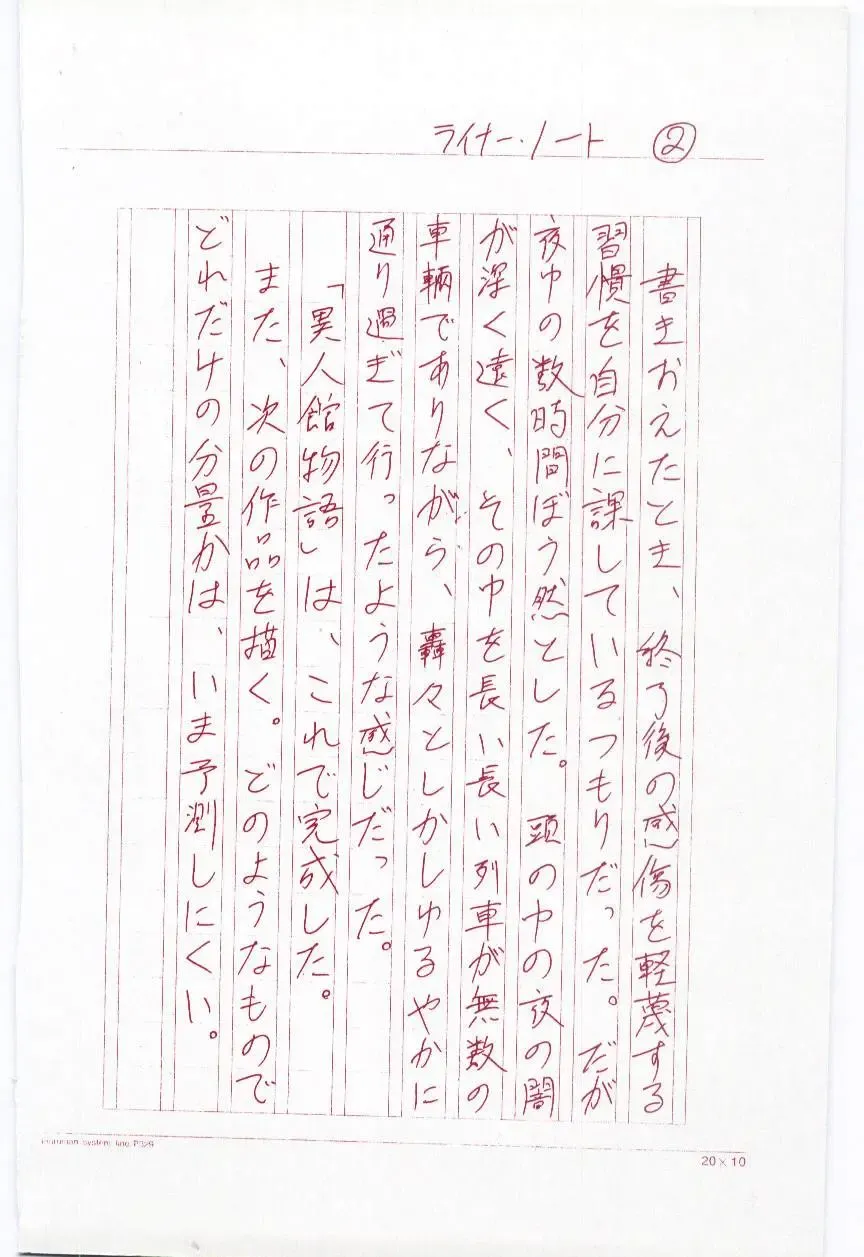 ライナー・ノート ②
書きおえたとき、終了後の感傷を軽蔑する
習慣を自分に課しているつもりだった。だが
夜中の数時間ぼう然とした。頭の中の夜の闇
が深く遠く、その中を長い長い列車が無数の
車輌でありながら、轟々としかしゆるやかに
通り過ぎて行ったような感じだった。
「異人館物語」は、これで完成した。
また、次の作品を描く。どのようなもので
どれだけの分量かは、いま予測しにくい。
20×10